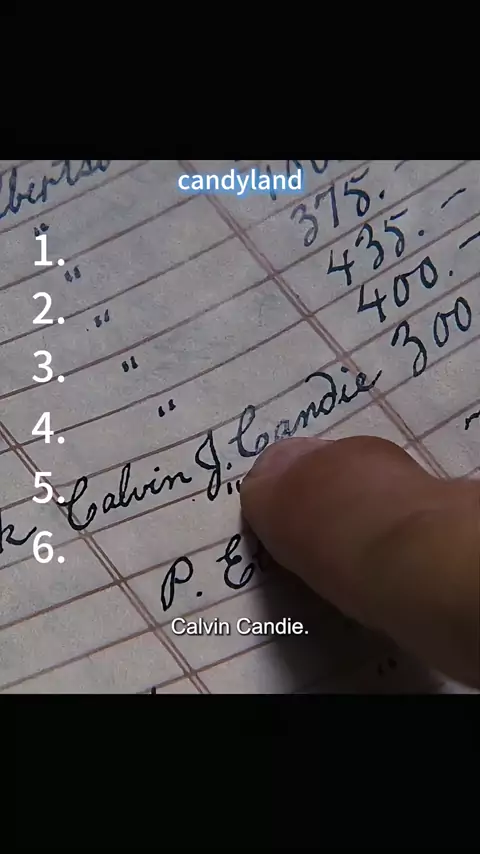 candyland
375. -
1.
"
435. -
"
2.
"
400. -
3.
"
300
4.
"
Calvin J. Candie
5.
"
6.
P. E
Calvin Candie.